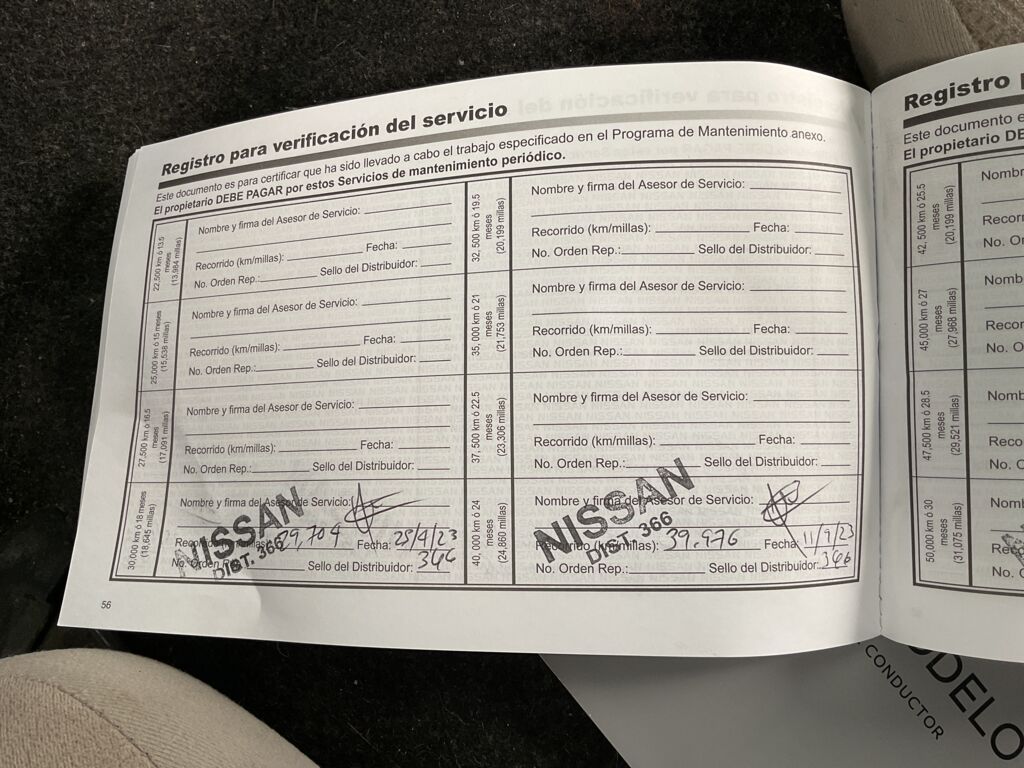 Registro para verificación del servicio
Este documento es para certificar que ha sido llevado a cabo el trabajo especificado en el Programa de Mantenimiento anexo.
El propietario DEBE PAGAR por estos Servicios de mantenimiento periódico.
22,500 km ó 13.5
meses
(13,984 millas)
Nombre y firma del Asesor de Servicio:
Recorrido (km/millas): Fecha:
No. Orden Rep.: Sello del Distribuidor:
25,000 km ó 15 meses
(15,538 millas)
Nombre y firma del Asesor de Servicio:
Recorrido (km/millas): Fecha:
No. Orden Rep.: Sello del Distribuidor:
27,500 km ó 16.5
meses
(17,091 millas)
Nombre y firma del Asesor de Servicio:
Recorrido (km/millas): Fecha:
No. Orden Rep.: Sello del Distribuidor:
30,000 km ó 18 meses
(18,645 millas)
Nombre y firma del Asesor de Servicio:
29,704 Fecha: 28/4/23
No. Orden Sello del Distribuidor: 366
NISSAN
DIST. 366
32, 500 km ó 19.5
meses
(20,199 millas)
Nombre y firma del Asesor de Servicio:
Recorrido (km/millas): Fecha:
No. Orden Rep.: Sello del Distribuidor:
35, 000 km ó 21
meses
(21,753 millas)
Nombre y firma del Asesor de Servicio:
Recorrido (km/millas): Fecha:
No. Orden Rep.: Sello del Distribuidor:
37, 500 km ó 22.5
meses
(23,306 millas)
Nombre y firma del Asesor de Servicio:
Recorrido (km/millas): Fecha:
No. Orden Rep.: Sello del Distribuidor:
40, 000 km ó 24
meses
(24,860 millas)
Nombre y firma del Asesor de Servicio:
Recorrido (km/millas): 39.976 Fecha 11/9/23
No. Orden Rep.: Sello del Distribuidor: 366
NISSAN
DIST. 366
56
Registro
Este documento e
El propietario D
42, 500 km ó 25.5
meses
(20,199 millas)
Nomb
Recor
No. O
45,000 km ó 27
meses
(27,968 millas)
Nomb
Recor
No. O
47,500 km ó 28,5
meses
(29,521 millas)
Nomb
Reco
No. O
50,000 km ó 30
meses
(31,075 millas)
Nombr
Reco
No. O
DELO
CONDUCTOR